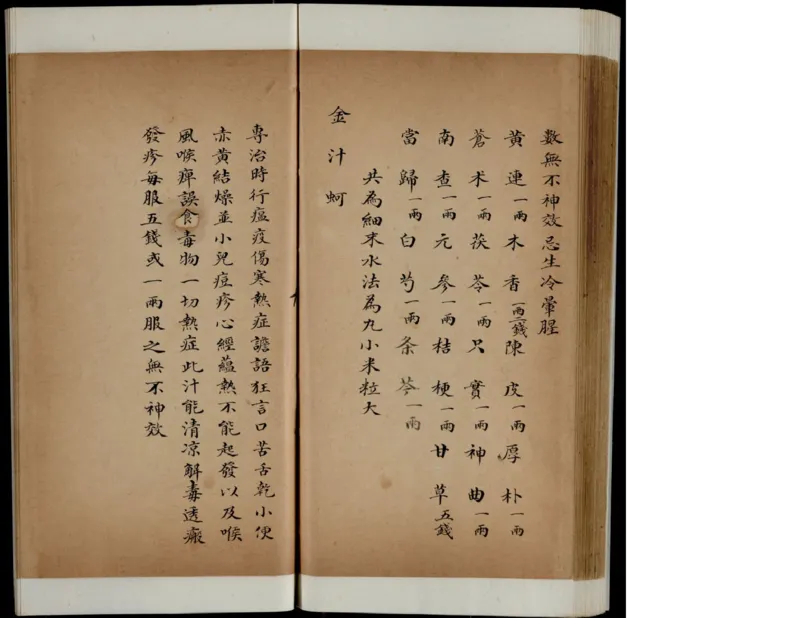 數無不神效忌生冷葷腥
黃連一兩木香一兩二錢陳皮一兩厚朴一兩
蒼术一兩茯苓一兩只實一兩神曲一兩
南查一兩元參一兩桔梗一兩甘草五錢
當歸一兩白芍一兩条芩一兩
共為細末水法為丸小米粒大
金汁蚵
專治時行瘟疫傷寒熱症譫語狂言口苦舌乾小便
赤黃結燥並小兒痘疹心經蘊熱不能起發以及喉
風喉痺誤食毒物一切熱症此汁能清凉解毒透癍
發疹每服五錢或一兩服之無不神效